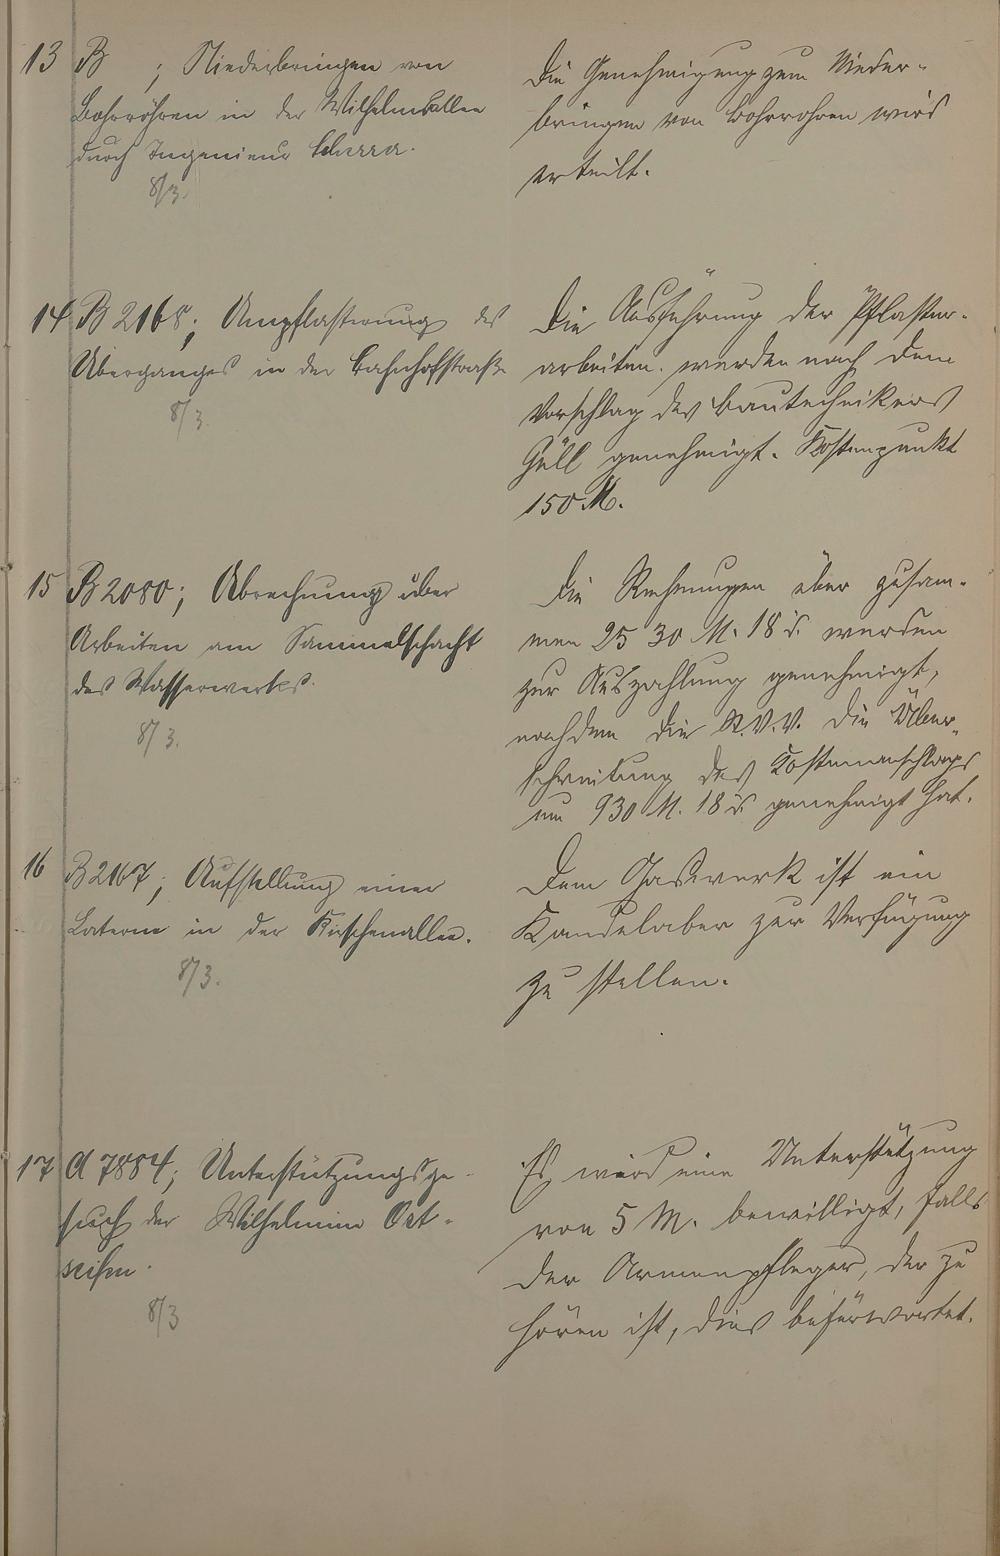 13 B ; Niederbringen von
Bohrröhren in der Wilhelmsallee
durch Ingenieur Scherrer.
8/3.
Die Genehmigung zum Nieder-
bringen von Bohrrohren wird
erteilt.
14 B 2168; Umpflasterung des
Überganges in der Bahnhofstraße
8/3.
Die Ausführung der Pflaster-
arbeiten werden nach dem
Vorschlag des Bautechnikers
Güll genehmigt. Kostenpunkt
150 M.
15 B 2080; Abrechnung über
Arbeiten am Sammelschacht
des Wasserwerkes.
8/3.
Die Rechnungen über zusam-
men 2530 M. 18 d. werden
zur Auszahlung genehmigt,
nachdem die St.V.V. die Über-
schreitung des Kostenanschlags
um 930 M. 18 d. genehmigt hat.
16 B 2167; Aufstellung einer
Laterne in der Kirschenallee.
8/3.
Dem Gaswerk ist ein
Kandelaber zur Verfügung
zu stellen.
17 A 7884; Unterstützungsge-
such der Wilhelmine Ort-
seifen.
8/3
Es wird eine Unterstützung
von 5 M. bewilligt, falls
der Armenpfleger, der zu
hören ist, dies befürwortet.